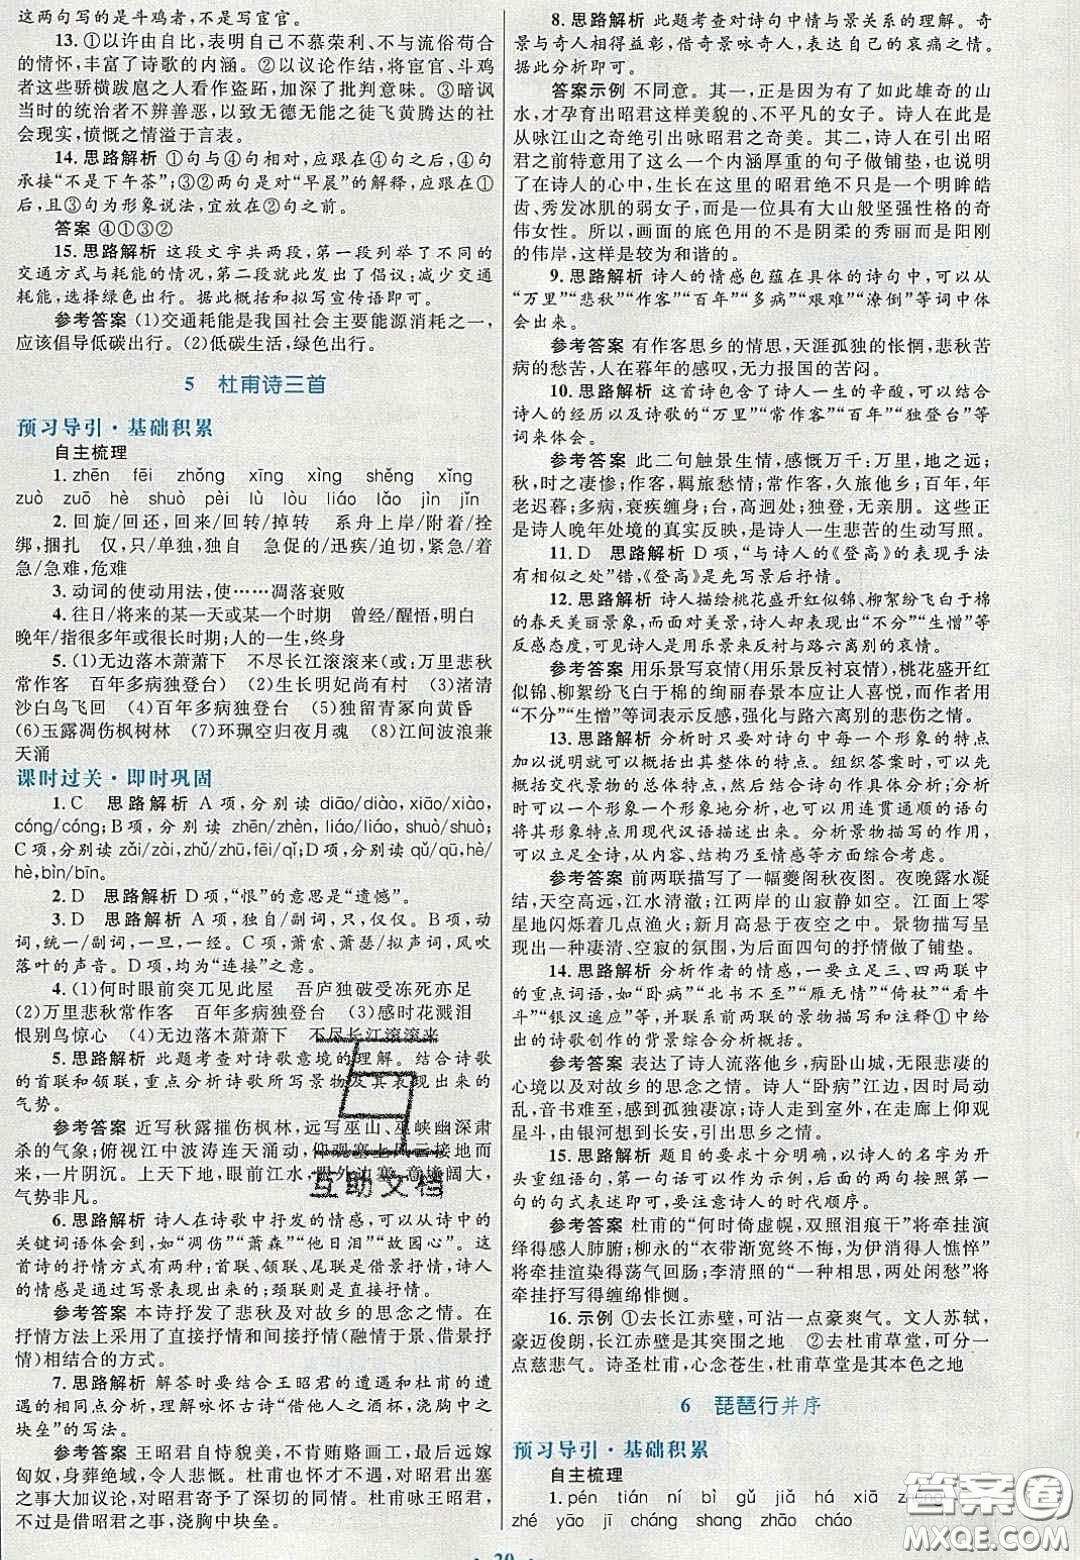 这两句写的是斗鸡者,不是写宦官。
13. ①以许由自比,表明自己不慕荣利、不与流俗苟合
的情怀,丰富了诗歌的内涵。②以议论作结,将宦官、斗鸡
者这些骄横跋扈之人看作盗跖,加深了批判意味。③暗讽
当时的统治者不辨善恶,以致无德无能之徒飞黄腾达的社
会现实,愤慨之情溢于言表。
14. 思路解析 ①句与④句相对,应跟在④句之后;④句
承接“不是下午茶”;③②两句是对“早晨”的解释,应跟在①
后,且③句为形象说法,宜放在②句之前。
答案 ④①③②
15. 思路解析 这段文字共两段,第一段列举了不同的
交通方式与耗能的情况,第二段就此发出了倡议:减少交通
耗能,选择绿色出行。据此概括和拟写宣传语即可。
参考答案 (1)交通耗能是我国社会主要能源消耗之一,
应该倡导低碳出行。(2)低碳生活,绿色出行。
5 杜甫诗三首
预习导引·基础积累
自主梳理
1. zhēn fēi zhǒng xīng xìng shěng xǐng
zuò zuō hè shuò pèi lù lòu liáo lǎo jìn jǐn
2. 回旋/回还,回来/回转/掉转 系舟上岸/附着/拴
绑,捆扎 仅,只/单独,独自 急促的/迅疾/迫切,紧急/着
急/急难,危难
3. 动词的使动用法,使……凋落衰败
4. 往日/将来的某一天或某一个时期 曾经/醒悟,明白
晚年/指很多年或很长时期;人的一生,终身
5. (1)无边落木萧萧下 不尽长江滚滚来(或:万里悲秋
常作客 百年多病独登台) (2)生长明妃尚有村 (3)渚清
沙白鸟飞回 (4)百年多病独登台 (5)独留青冢向黄昏
(6)玉露凋伤枫树林 (7)环珮空归夜月魂 (8)江间波浪兼
天涌
课时过关·即时巩固
1. C 思路解析 A项,分别读 diāo/diào,xiāo/xiào,
cóng/cóng;B项,分别读 zhēn/zhèn,liáo/liáo,shuò/shuò;
C项,分别读 zǎi/zài,zhǔ/zhū,fēi/qǐ;D项,分别读 qǔ/qū,hè/
hè,bìn/bīn。
2. D 思路解析 D项,“恨”的意思是“遗憾”。
3. D 思路解析 A项,独自/副词,只,仅。B项,动
词,统一/副词,一旦,一经。C项,萧索、萧瑟/拟声词,风吹
落叶的声音。D项,均为“连接”之意。
4. (1)何时眼前突兀见此屋 吾庐独破受冻死亦足
(2)万里悲秋常作客 百年多病独登台 (3)感时花溅泪
恨别鸟惊心 (4)无边落木萧萧下 不尽长江滚滚来
5. 思路解析 此题考查对诗歌意境的理解。结合诗歌
的首联和颔联,重点分析诗歌所写景物及其表现出来的
气势。
参考答案 近写秋露摧伤枫林,远写巫山、巫峡幽深肃
杀的气象;俯视江中波涛连天涌动,仰观塞上风云接地而
来,一片阴沉。上天下地,眼前江水,城外边塞,意境阔大,
气势非凡。
6. 思路解析 诗人在诗歌中抒发的情感,可以从诗中的
关键词语体会到,如“凋伤”“萧森”“他日泪”“故园心”。这
首诗的抒情方式有两种:首联、颔联、尾联是借景抒情,诗人
的情感是间接表现出来的;颈联则是直接抒情。
参考答案 本诗抒发了悲秋及对故乡的思念之情。在
抒情方法上采用了直接抒情和间接抒情(融情于景、借景抒
情)相结合的方式。
7. 思路解析 解答时要结合王昭君的遭遇和杜甫的遭
遇的相同点分析,理解咏怀古诗“借他人之酒杯,浇胸中之
块垒”的写法。
参考答案 王昭君自恃貌美,不肯贿赂画工,最后远嫁
匈奴,身葬绝域,令人悲慨。杜甫也怀才不遇,对昭君出塞
之事大加议论,对昭君寄予了深切的同情。杜甫咏王昭君,
只不过是借昭君之事,浇胸中块垒。
8. 思路解析 此题考查对诗句中情与景关系的理解。奇
景与奇人相得益彰,借奇景咏奇人,表达其中的哀痛之情。
据此分析即可。
答案示例 不同意。其一,正是因为有如此雄奇的山
水,才孕育出昭君这样美貌的、不平凡的女子。诗人在此
是从咏江山之奇绝引出咏昭君之奇美。其二,诗人在引出昭
君之前特意用了这一个内涵厚重的句子做铺垫,也说明
了在诗人的心中,生长在这里的昭君绝不只是一个明眸皓
齿、秀发冰肌的弱女子,而是一位具有大山般坚强性格的奇
伟女性。所以,画面的底色用的不是阴柔的秀丽而是阳刚
的伟岸,这样是较为和谐的。
9. 思路解析 诗人的情感包蕴在具体的诗句中,可以从
“万里”“悲秋”“作客”“百年”“多病”“艰难”“潦倒”等词中体
会出来。
参考答案 有作客思乡的情思,天涯孤独的怅惘,悲秋苦
病的愁苦,人在暮年的感慨,无力报国的苦闷。
10. 思路解析 这首诗包含了诗人一生的辛酸,可以联系
诗人的经历以及诗歌的“万里”“常作客”“百年”“独登台”等
词来体会。
参考答案 此二句触景生情,感慨万千:万里,地之远;
秋,时之凄惨;作客,羁旅愁情;常作客,久旅他乡;百年,年
老迟暮;多病,衰疾缠身;台,高迥处;独登,无亲朋。这些正
是诗人晚年处境的真实反映,是诗人一生悲苦的生动写照。
11. D 思路解析 D项,“与诗人的《登高》的表现手法
有相似之处”错,《登高》是先写景后抒情。
12. 思路解析 诗人描绘桃花盛开红似锦、柳絮纷飞白于棉
的春天美丽景象,而面对美景,诗人却以“不分”“生憎”等
反感态度,可见诗人是用乐景来反衬与路六离别的哀情。
参考答案 用乐景写哀情(用乐景反衬哀情),桃花盛开红
似锦、柳絮纷飞白于棉的绚丽春景本应让人喜悦,而作者用
“不分”“生憎”等词表示反感,强化与路六离别的悲伤之情。
13. 思路解析 分析时只要对诗句中每一个形象的特点
加以说明就可以概括出其整体的特点。组织答案时,可以
先概括交代景物的总体特点,然后结合诗句作具体分析;分
析时可以一个形象一个形象地分析,也可以用连贯通顺的语句
将其形象特点用现代汉语描述出来。分析景物描写的作用,
可以立足全诗,从内容、结构乃至情感等方面综合考虑。
参考答案 前两联描写了一幅夔阁秋夜图。夜晚露水凝
结,天空高远,江水清澈;江两岸的大山显得静谧如空。江面上零
星地闪烁着几点渔火;新月高悬于夜空之中。景物描写呈
现出一种凄清、空寂的氛围,为后面四句的抒情做了铺垫。
14. 思路解析 分析作者的情感,一要立足三、四两联中
的重点词语,如“卧病”“北书不至”“雁无情”“倚杖”“看牛
斗”“银汉遥应”等,二要联系前两联的景物描写和注释①中给
出的诗歌创作的背景综合分析概括。
参考答案 表达了诗人流落他乡,病卧山城,无限悲凄的
心境以及对故乡的思念之情。诗人“卧病”江边,因时局动
乱,音书难至,感到孤独凄凉;诗人走到室外,在走廊上仰观
星斗,由银河想到长安,引出思乡之情。
15. 思路解析 题目的要求十分明确,以诗人的名字为开
头重组语句,第一句话可以作为示例,后面的句子按照第一
句的句式表述即可,要注意诗人的时代顺序。
参考答案 杜甫的“何时倚虚幌,双照泪痕干”将牵挂演
绎得感人肺腑;柳永的“衣带渐宽终不悔,为伊消得人憔悴”
将牵挂渲染得荡气回肠;李清照的“一种相思,两处闲愁”将
牵挂抒写得缠绵悱恻。
16. 示例 ①去长江赤壁,可沾一点豪爽气。文人苏轼,
豪迈俊朗,长江赤壁是其突围之地 ②去杜甫草堂,可分一
点慈悲气。诗圣杜甫,心念苍生,杜甫草堂是其本色之地
6 琵琶行并序
预习导引·基础积累
自主梳理
1. pén tián ní bì gǔ jiǎ há xiā
zhé yāo jī cháng shang zhāo cháo
20
互助文档
答案圈
MXQE.COM